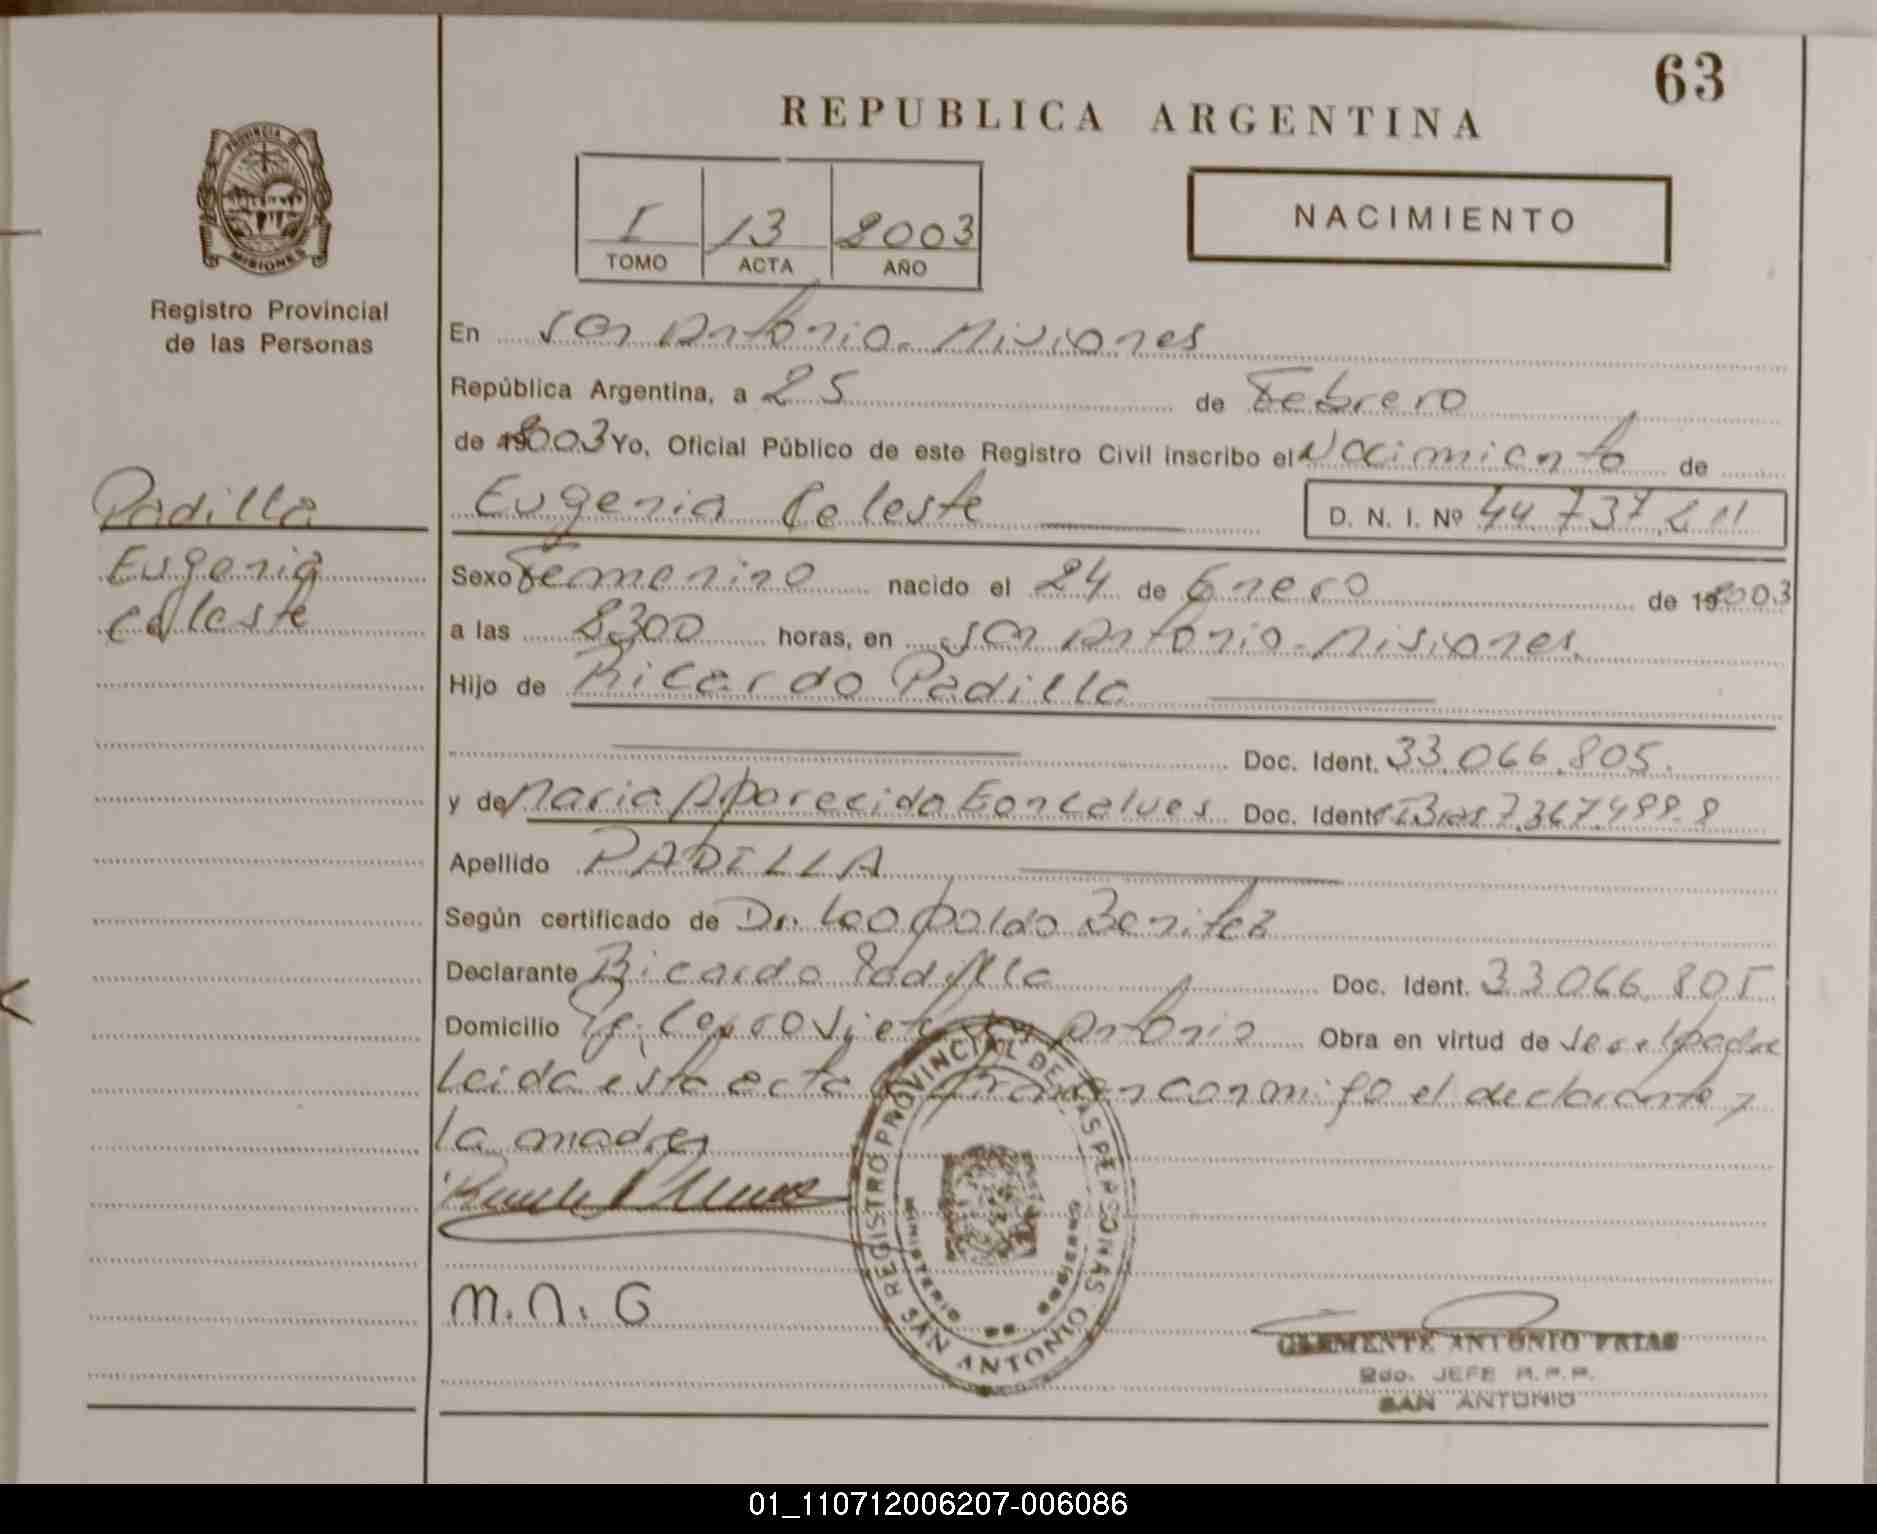 63
REPUBLICA ARGENTINA
I 13 2003
TOMO ACTA AÑO
NACIMIENTO
PROVINCIA DE
MISIONES
Registro Provincial
de las Personas
En San Antonio - Misiones
República Argentina, a 25 de Febrero
de 2003 Yo, Oficial Público de este Registro Civil inscribo el Nacimiento de
Padilla
Eugenia Celeste
Eugenia Celeste D. N. I. Nº 44 737 211
Sexo Femenino nacido el 24 de Enero de 2003
a las 2300 horas, en San Antonio - Misiones.
Hijo de Ricardo Padilla
Doc. Ident. 33.066.805.
y de Maria Aparecida Goncalves Doc. Ident
Apellido PADILLA
Según certificado de Dr. Leopoldo Benitez
Declarante Ricardo Padilla Doc. Ident. 33.066.805
Domicilio San Antonio Obra en virtud de ser el padre
Leida esta acta firman conmigo el declarante y
la madre
M. A. G
REGISTRO PROVINCIAL DE LAS PERSONAS
SAN ANTONIO
MISIONES
CLEMENTE ANTONIO FRIAS
JEFE R.P.P.
SAN ANTONIO
01_110712006207-006086